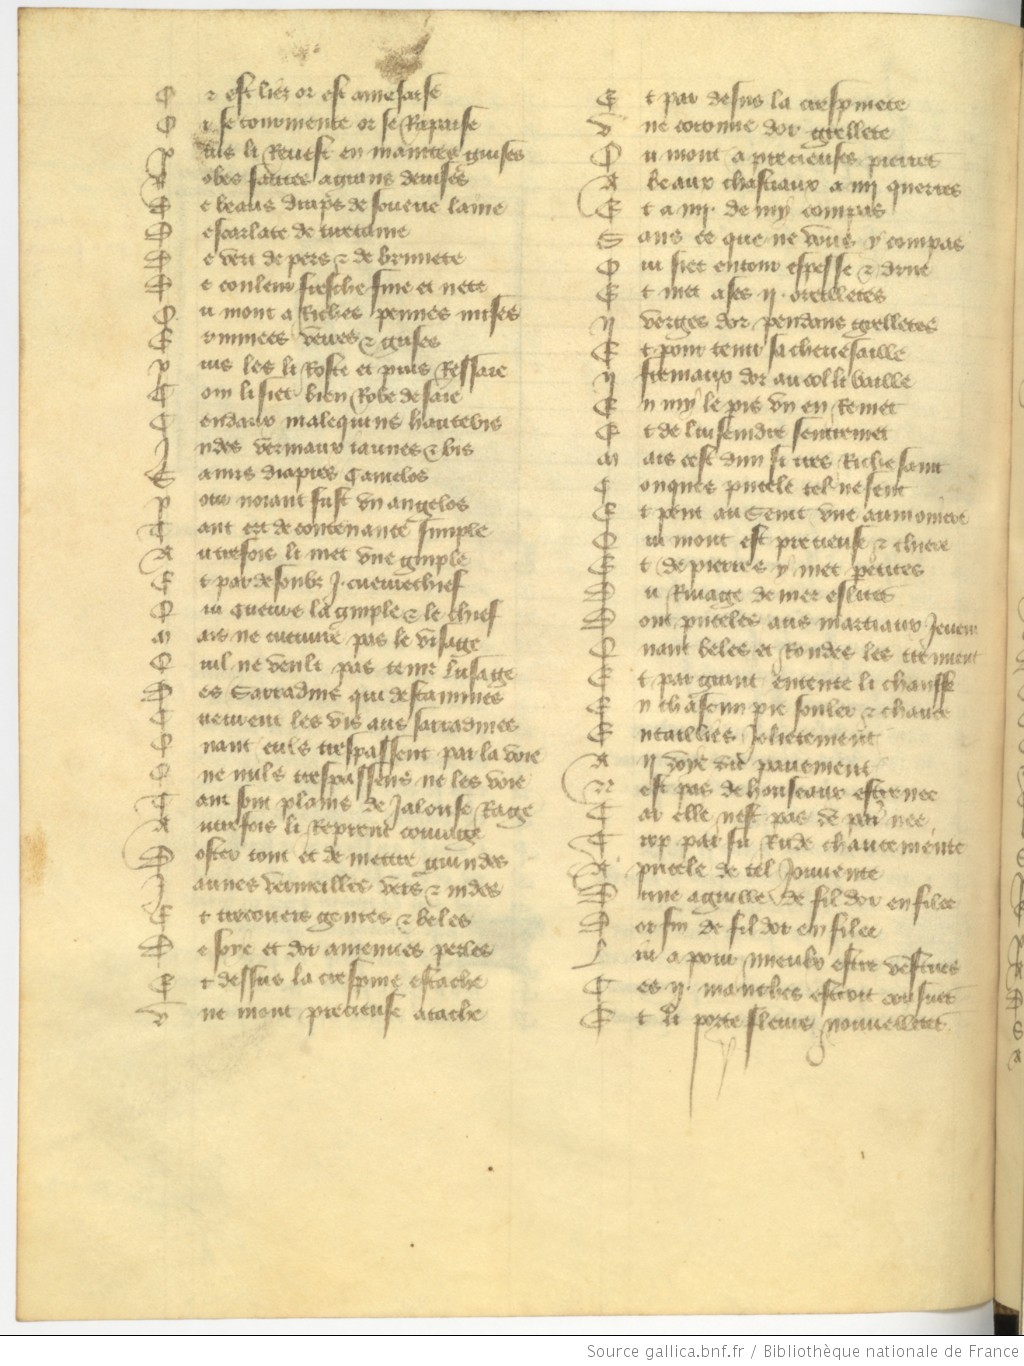 O r est liez or est amesaise
O r se tourmente or se Rapaise
P uis li Revest en maintes guises
R obes faites a grans devises
D e beaus draps de soueue laine
D escarlate de tiretaine
D e vert de pers ⁊ de brunete
D e couleur fresche fine et nete
O u mont a Riches pennes mises
E rminees veires ⁊ grises
P uis les li Roste et puis Ressaie
C om li siet bien Robe de saie
C endaux malequins hautebis
I ndes vermaux iaunes ⁊ bis
S amis diapres Camelos
P our noiant fust vn angelos
T ant est de contenance simple
A utrefois li met vne gimple
E t par desoubz J. cueurechief
Q ui cueuure la gimple ⁊ le chief
M ais ne cueuure pas le visage
Q uil ne veult pas tenir lusage
D es Sarradins qui destamines
C ueurent les vis aus sarradines
Q uant euls trespassent par la voie
Q ne nuls trespassens ne les voie
T ant sont plains de Jalouse Rage
A utrefois li Reprent courage
D oster tout et de mettre guindes
J aunes vermeilles vers ⁊ indes
E t trecouers gentes ⁊ beles
D e soye et dor a menues perles
E t dessus la crespine estache
V ne mont precieuse atache
E t par desus la crespinete
V ne coronne dor grellete
O u mont a precieuses pierres
A beaux chastiaux a iiij querres
E t a iiij. demy compas
S ans ce que ne vous y compas
Q ui siet entour espesse ⁊ drue
E t met a ses ij. oreilletes
ij verges dor pendans grelletes
E t pour tenir sa cheuesaille
ij fremaux dor au col li baille
E n my le pis vn en Remet
E t de luiseindre sentremet
M ais cest dun si tres Riche saint
C onques pucele tel ne seint
E t pent au Seint vne aumoniere
Q ui mont est precieuse ⁊ chiere
E t de pierres y met petites
D u Riuage de mer eslites
D ont puceles aus martiaux Jeuent
Q uant beles et Rondes les treuuent
E t par grant entente li chausse
E n chascun pie souler ⁊ chauce
E ntaillies Jolietement
A ij doye du pauement
N est pas de houseaux estrenee
C ar elle nest pas de paris nee
T rop par fu Rude chaucemente
A pucele de tel Jouuente
D une aguille de fil dor enfilee
D or fin de fil dor enfilee
L ui a pour mieulx estre vestues
C es ij. manches estroit cousues
E t li porte fleurs nouuelletes